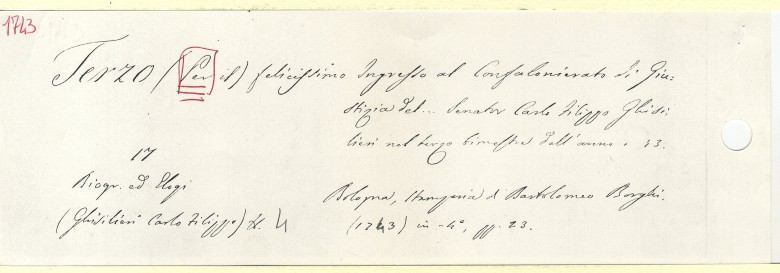 1743
Terzo (Per il) felicissimo Ingresso al Confalonierato di Giu=
stizia del... Senator Carlo Filippo Ghisi-
lieri nel terzo bimestre dell'anno 43.
17
Biogr. ed Elogi
(Ghisilieri Carlo Filippo) 4
Bologna, Stamperia di Bartolomeo Borghi.
(1743) in-4°, pp. 23.